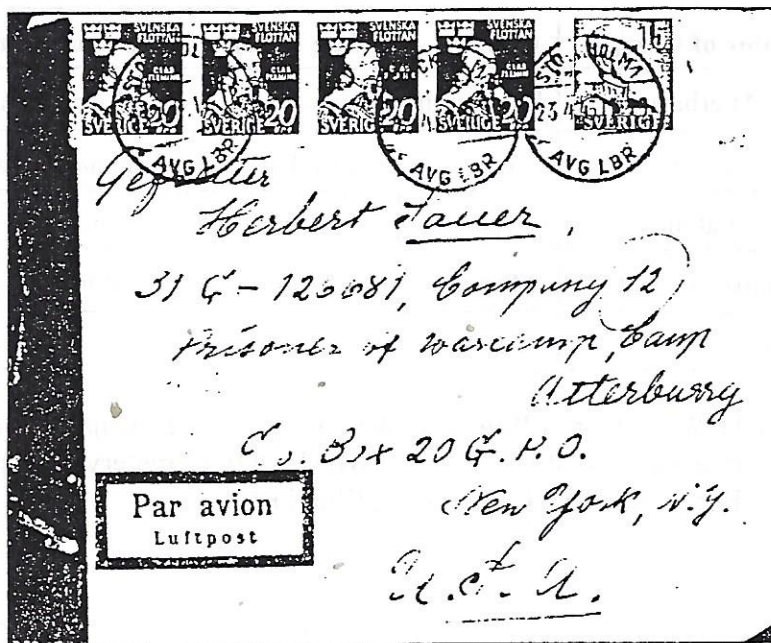 SVENSKA FLOTTAN CLAS FLEMING 20 SVERIGE
SVENSKA FLOTTAN CLAS FLEMING 20 SVERIGE
SVENSKA FLOTTAN 20 SVERIGE
SVENSKA FLOTTAN CLAS FLEMING 20 SVERIGE
SVERIGE
AVG LBR
AVG LBR
AVG LBR
Gefreiter
Herbert Sauer,
31 G - 120081, Company 12
Prisoner of warcamp, Camp
Atterburry
Box 20 G.P.O.
New York, N.Y.
U.S.A.
Par avion
Luftpost